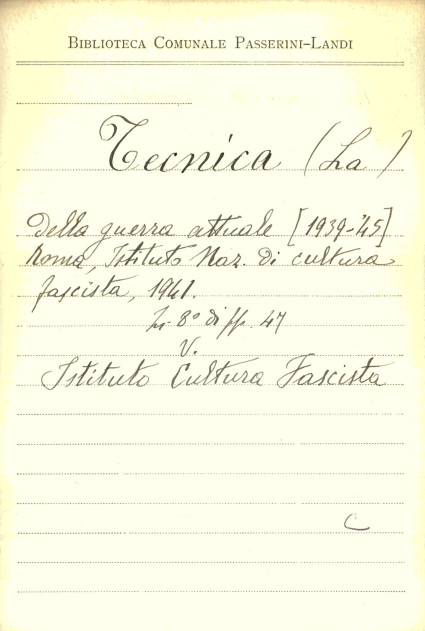 BIBLIOTECA COMUNALE PASSERINI-LANDI
Tecnica (La)
della guerra attuale [1939-'45]
Roma, Istituto Naz. di cultura
fascista, 1941.
in-8° di pp. 47
V.
Istituto Cultura Fascista
C